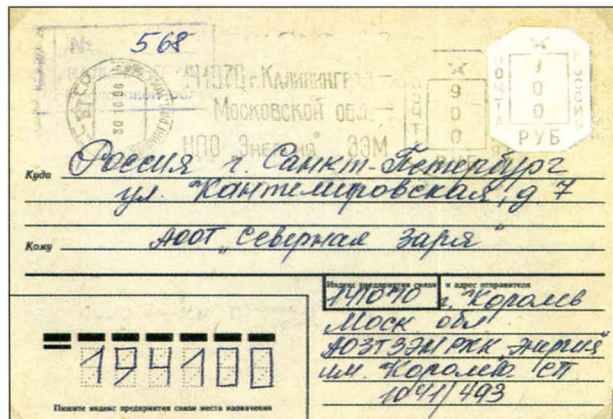 №
568
141070 г. КАЛИНИНГРАД
МОСКОВСКОЙ ОБЛ.
НПО "ЭНЕРГИЯ" ЗЭМ
30 10 96
900
300
РУБ
Куда Россия г. Санкт-Петербург
ул. Кантемировская, д 7
Кому АООТ „Северная Заря"
Индекс предприятия связи и адрес отправителя
141070 г. Королев
Моск обл
АОЗТ ЗЭМ РКК Энергия
им. Королева СП
1041/493
194100
Пишите индекс предприятия связи места назначения